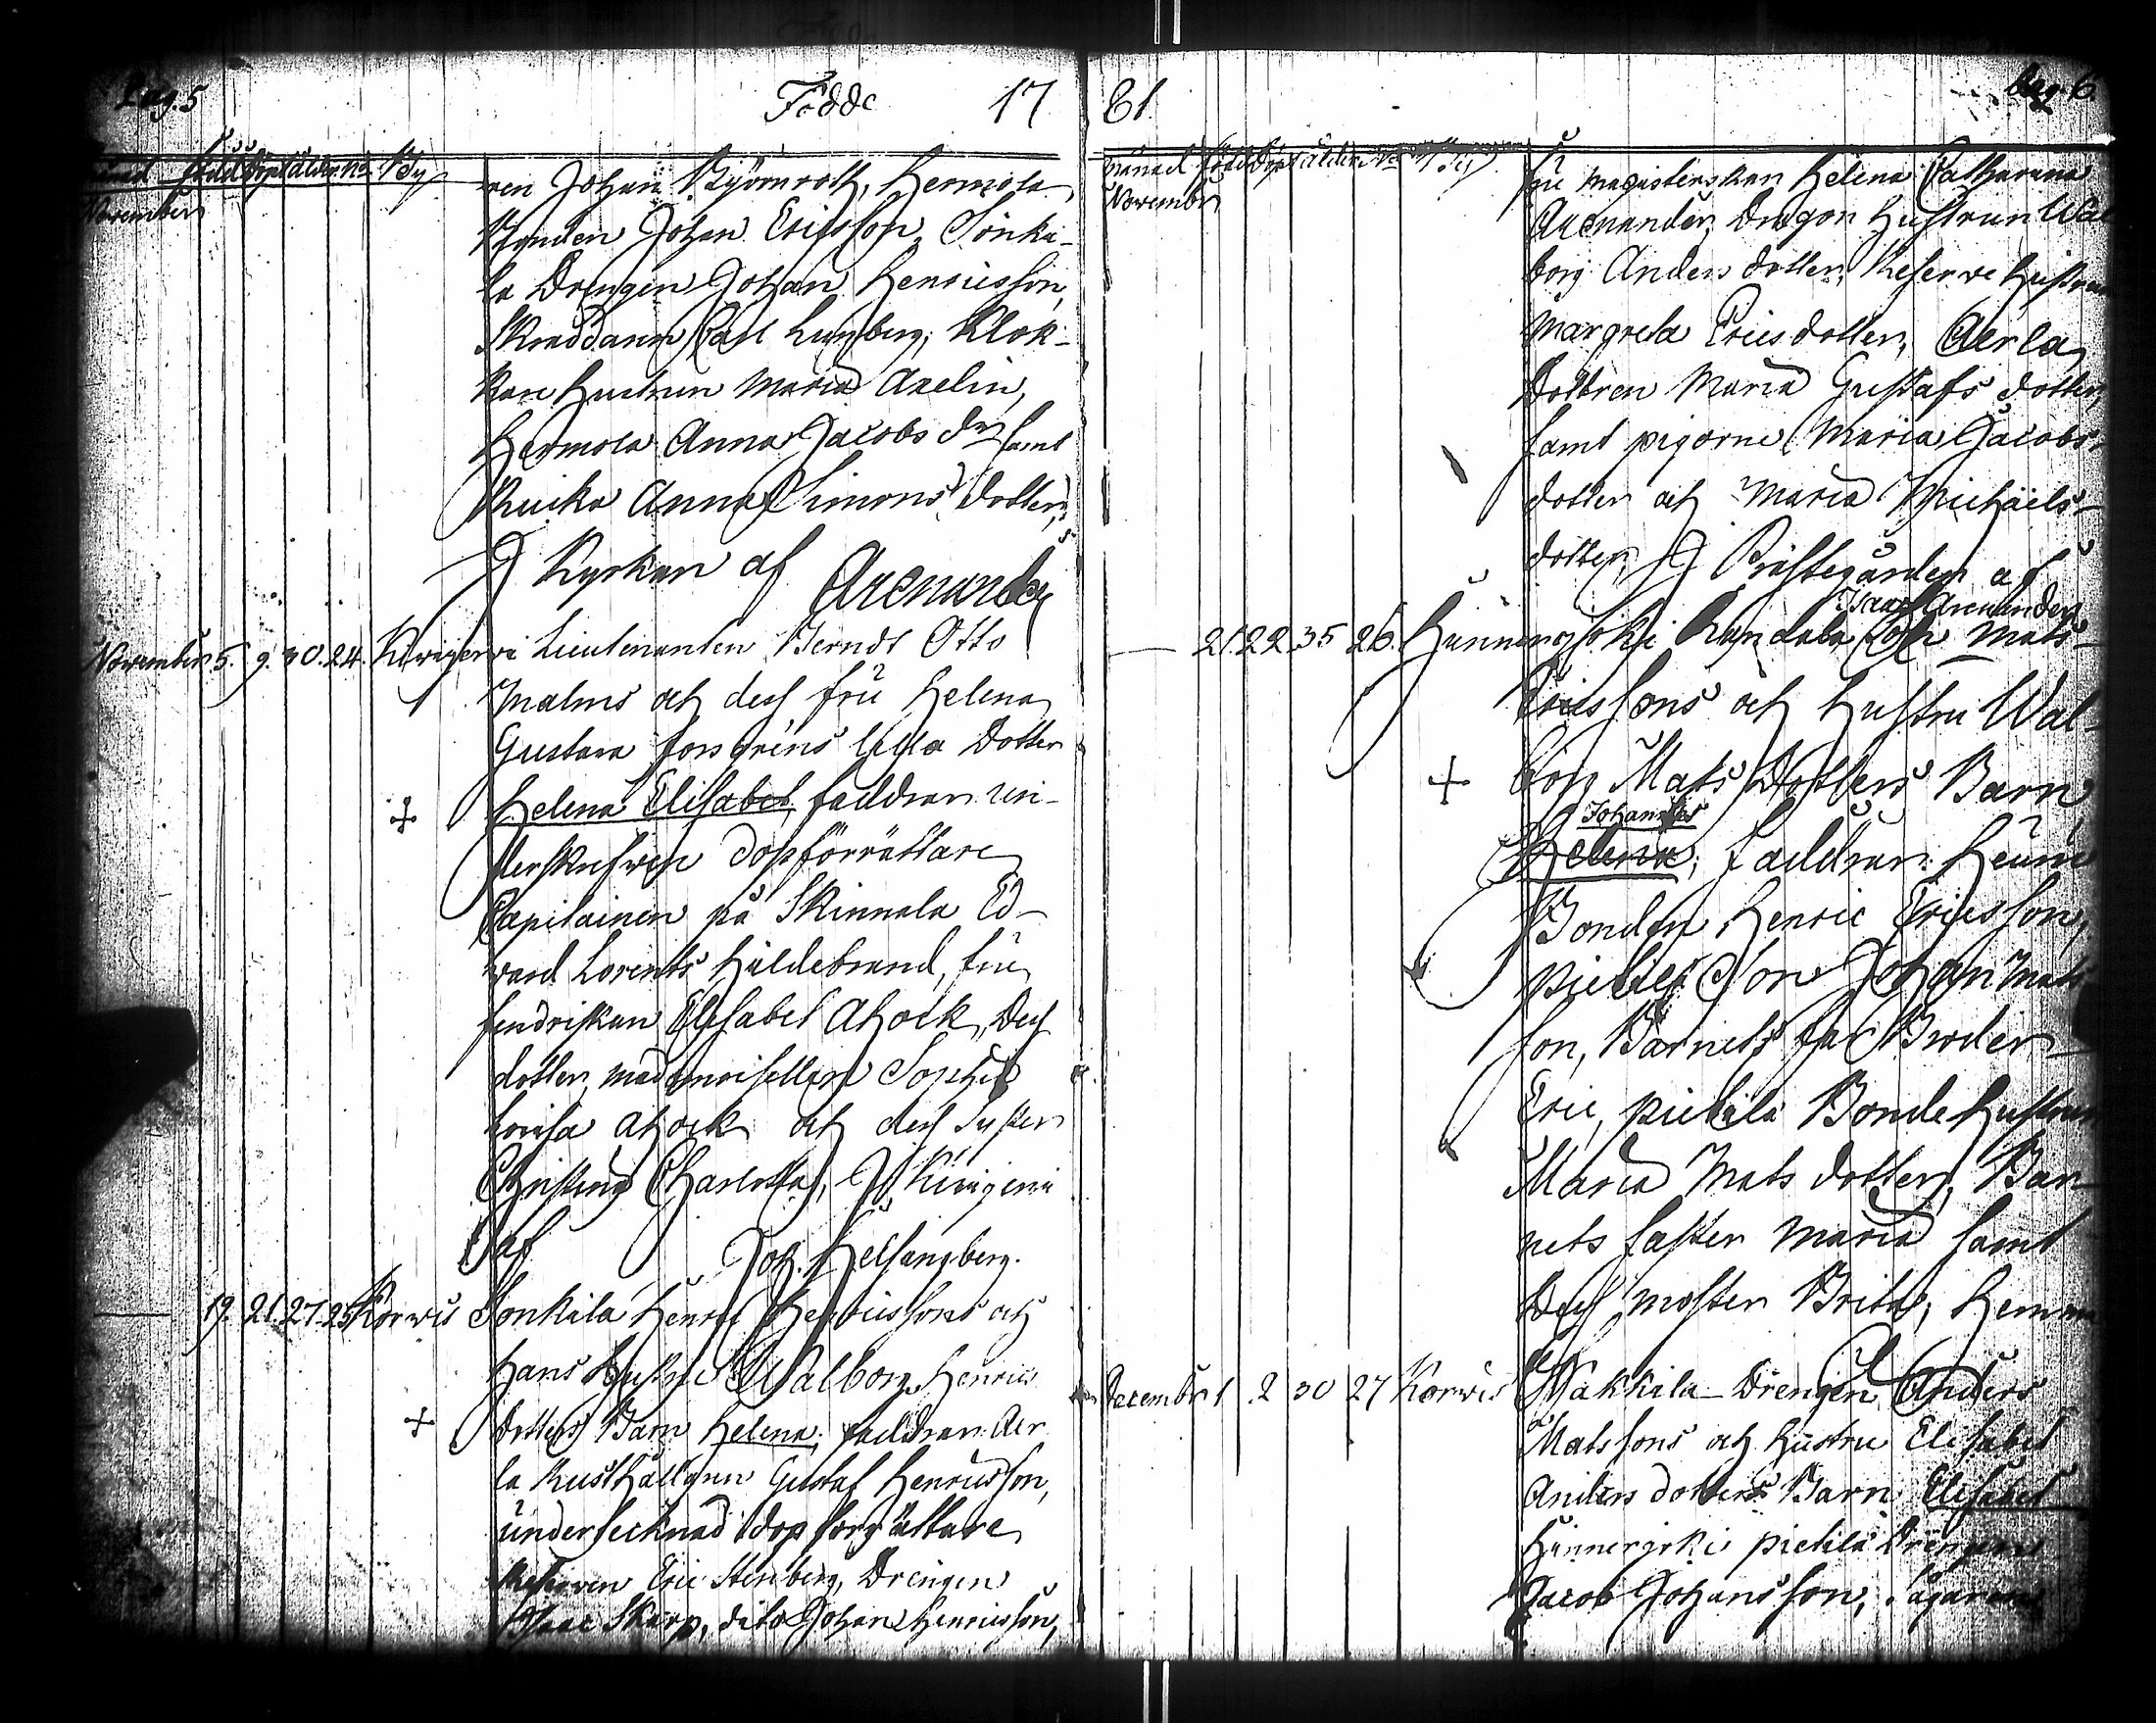 Pag. 5
Födde 17
född döpt ålder No By
November
ren Johan Byömroth, Hermola
Bonden Johan Ericsson, Sonki-
la Drengen Johan Henricsson,
Skreddaren Carl Lungberg, Klok-
kare Hustrun Maria Axelin,
Hermola Anna Jacobs dr samt
Anna Simons dotter,
J Kyrkan af
Arenander
November 5. 9. 30. 24. Lieutenanten Berndt Otto
Malms och dess fru Helena
Gustava Forsgréns Dotter
Helena Elisabet, faddrar un-
derskrefwen dopförrättare
Capitainen på Skinnala Ed-
vard Lorents Hildebrand, fru
fendriskan Elisabet Ahock, Dess
dotter mademoisellen Sophia
Lovisa Ahock och dess Syster
Christina Charlotta, J
af Joh. Helsingberg.
19. 21. 27. 25 Korwis Sonkila Henric Henricssons och
hans Hustru Walborg Henrics
dotters Barn Helena, faddrar Aer
la Rusthållaren Gustaf Henricsson,
undertecknad dopförrättare
Reserven Eric Stenberg, Drengen
Isaac Skarp, dito Johan Henricsson,
81. Pag. 6
månad född döpt ålder No By
November
fru Magisterskan Helena Catharina
Arenander, Dragon Hustrun Wal
borg Anders dotter, Reserve Hustrun
Margreta Erics dotter, Aerla
Dottren Maria Gustafs dotter,
samt pigorne Maria Jacobs
dotter och Maria Michaels-
dotter, J Prästegården af
Isaac Arenander
21. 22. 35 26. Hunnerjoki Mats
Ericssons och hustru Wal-
borg Mats Dotters Barn
Johannes
Helena, faddrar:
Bonden Henric Ericsson,
Pietilä Son Johan Mats
son, Barnets far Broder
Eric, Pietilä Bonde Hustrun
Maria Mats dotter, Bar-
nets faster Maria samt
Dess moster Brita,
December 1 2 30 27 Korwis Wäkkilä Drengen Anders
Matssons och hustru Elisabet
Anders dotters Barn Elisabet
Hunnerjoki Pietilä Drengen
Jacob Johansson,